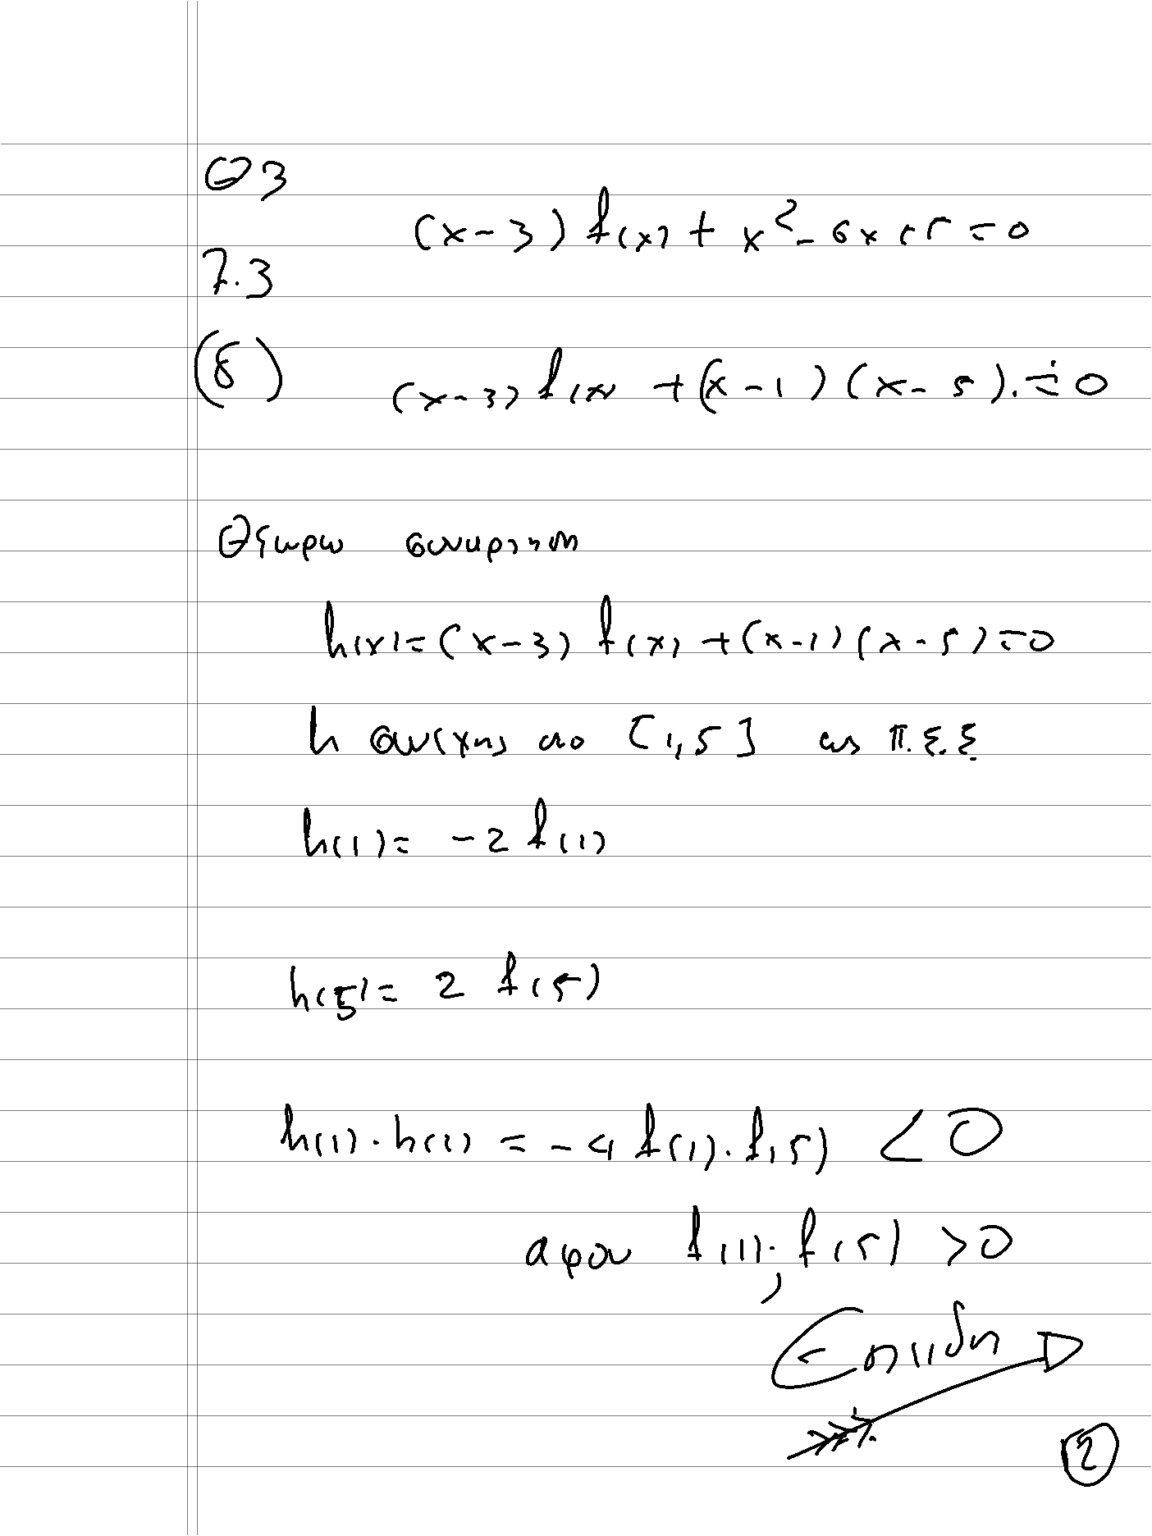 Θ3
(x-3) f(x) + x² - 6x + 5 = 0
7.3
(δ)
(x-3) f(x) + (x-1)(x-5) = 0
Θεωρω συναρτηση
h(x) = (x-3) f(x) + (x-1)(x-5) = 0
h συνεχης στο [1,5] ως π.ξ.ξ
h(1) = -2 f(1)
h(5) = 2 f(5)
h(1) · h(1) = -4 f(1) · f(5) < 0
αφου f(1) · f(5) > 0
Επειδη
2